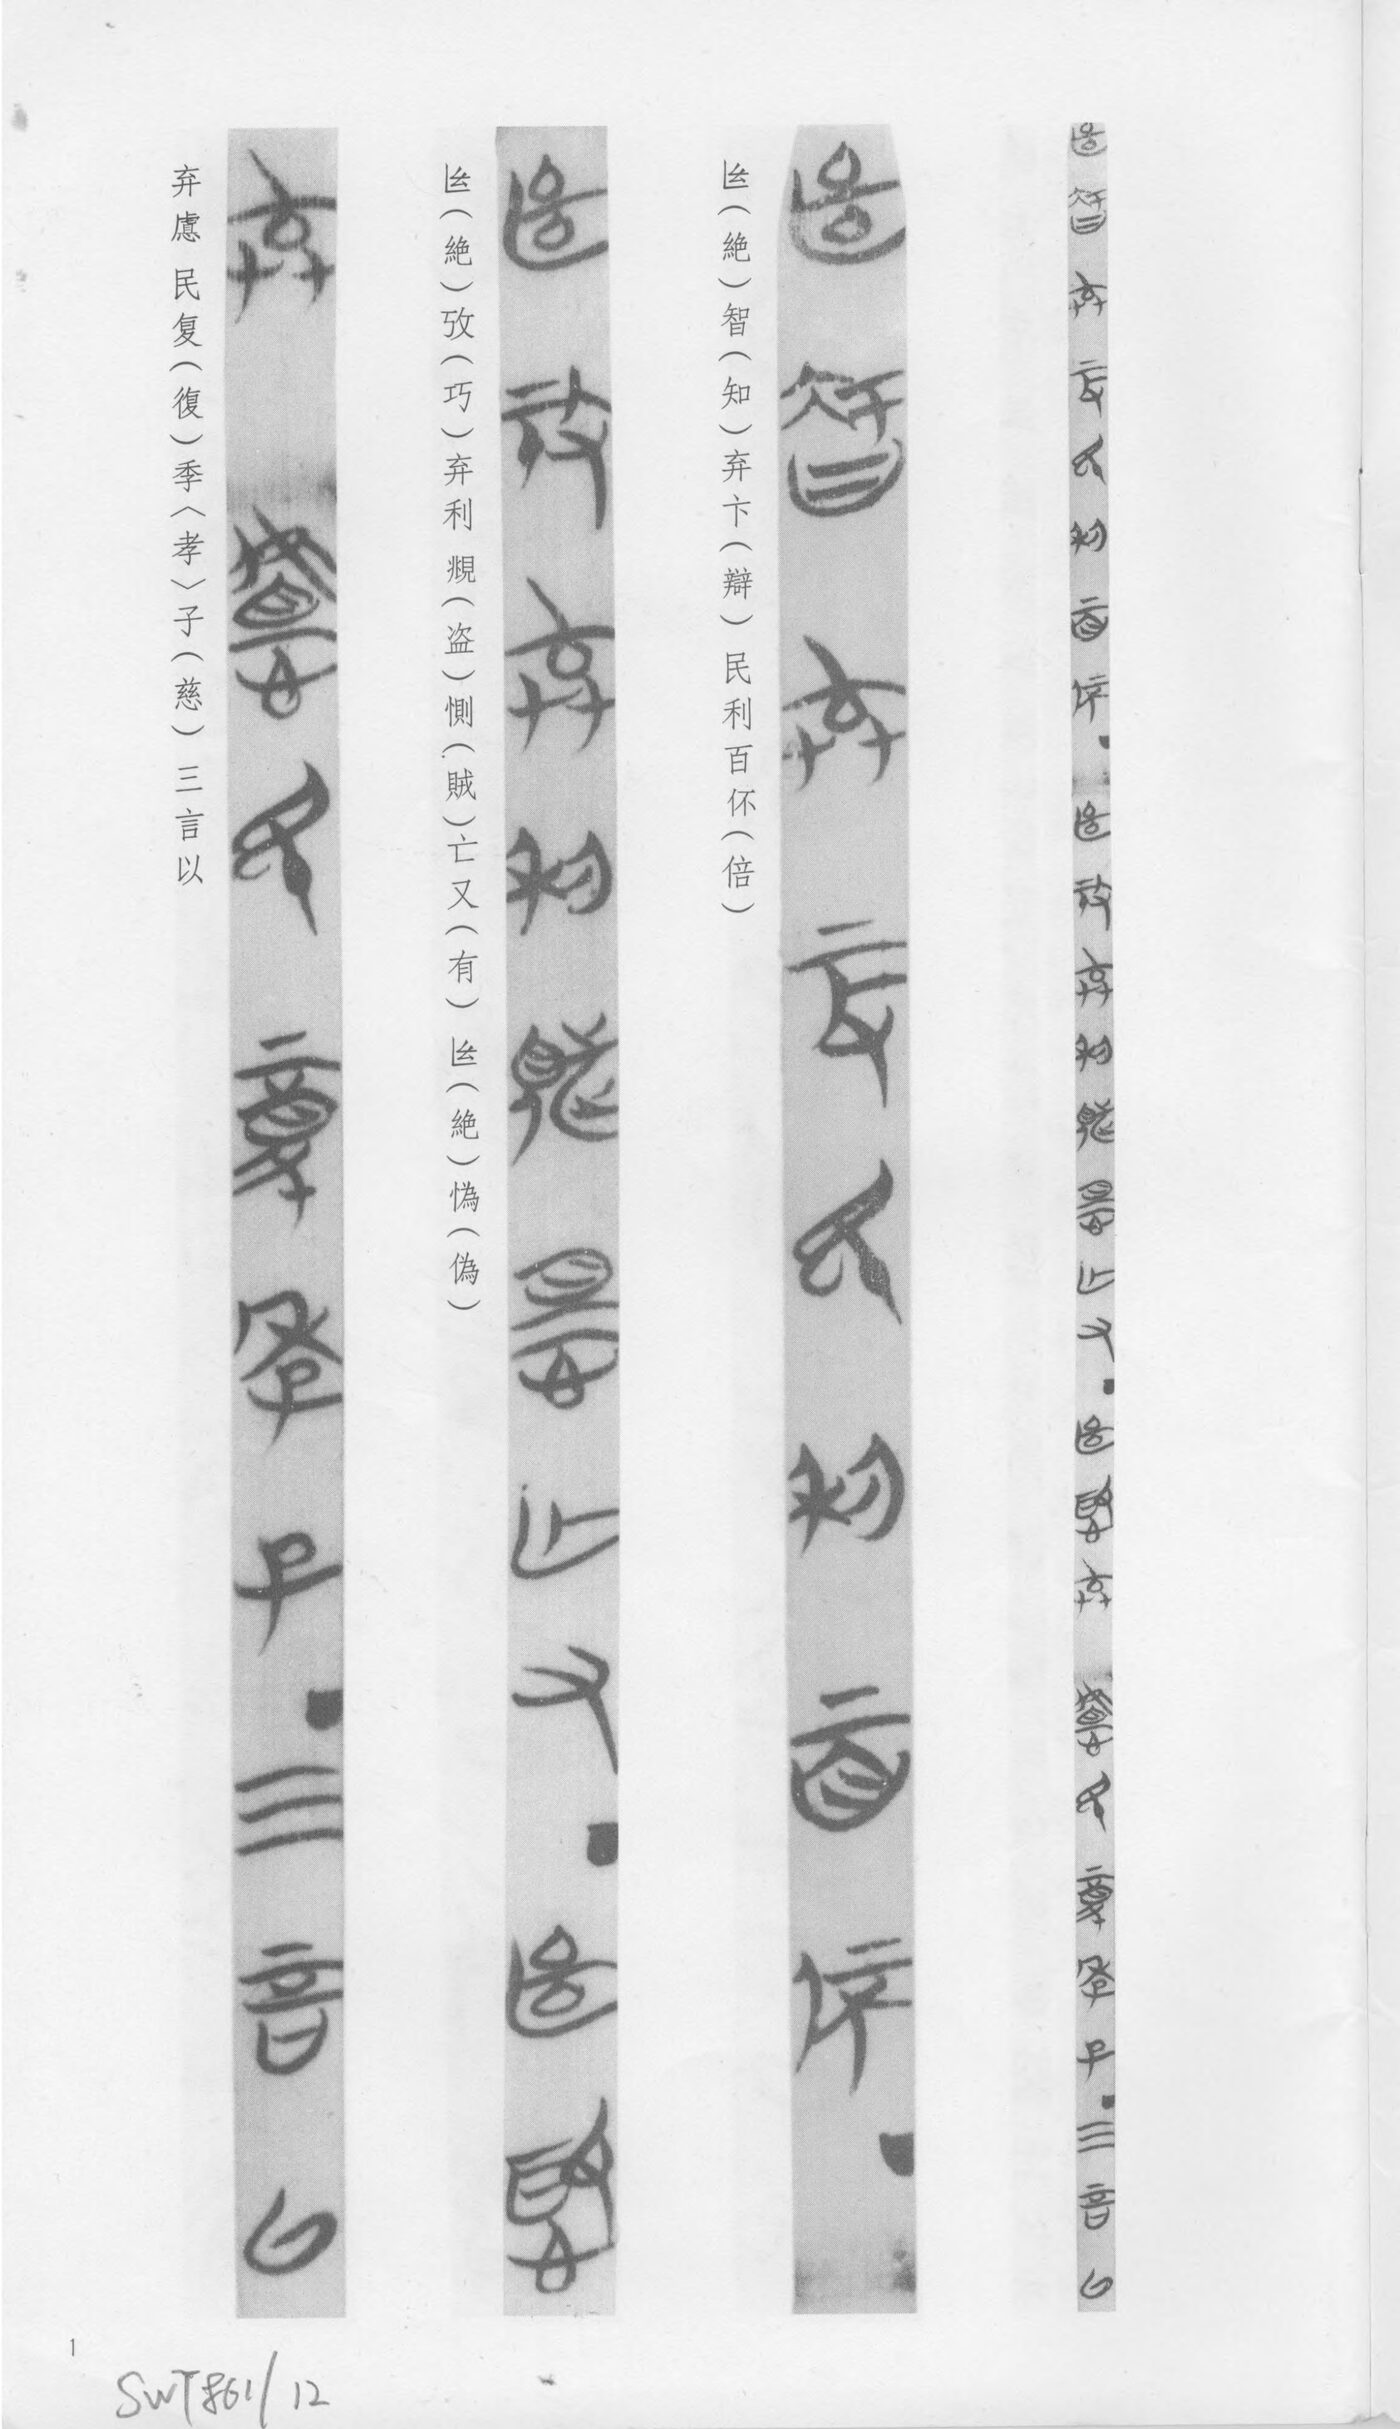 𢇍（絕）智（知）弃卞（辯）民利百伓（倍）
𢇍（絕）攷（巧）弃利覜（盗）惻（賊）亡又（有）𢇍（絕）憍（偽）
弃慮民复（復）季〈孝〉子（慈）三言以
1
SWT861/12